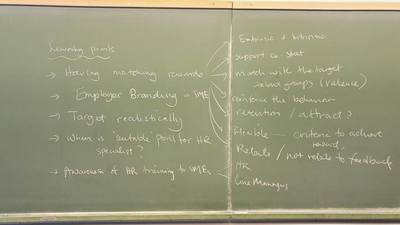 Learning points
→ Having matching rewards
→ Employer Branding - SME
→ Target realistically
→ when is 'suitable' point for HR
specialist?
→ Awareness of HR training to SMEs
Extrinsic + Intrinsic
support co. strat
match with the target
talent groups (valence)
reinforce the behavior
retention / attract?
Flexible — criteria to achieve
reward.
Relate / not relate to feedback
HR
Line Managers